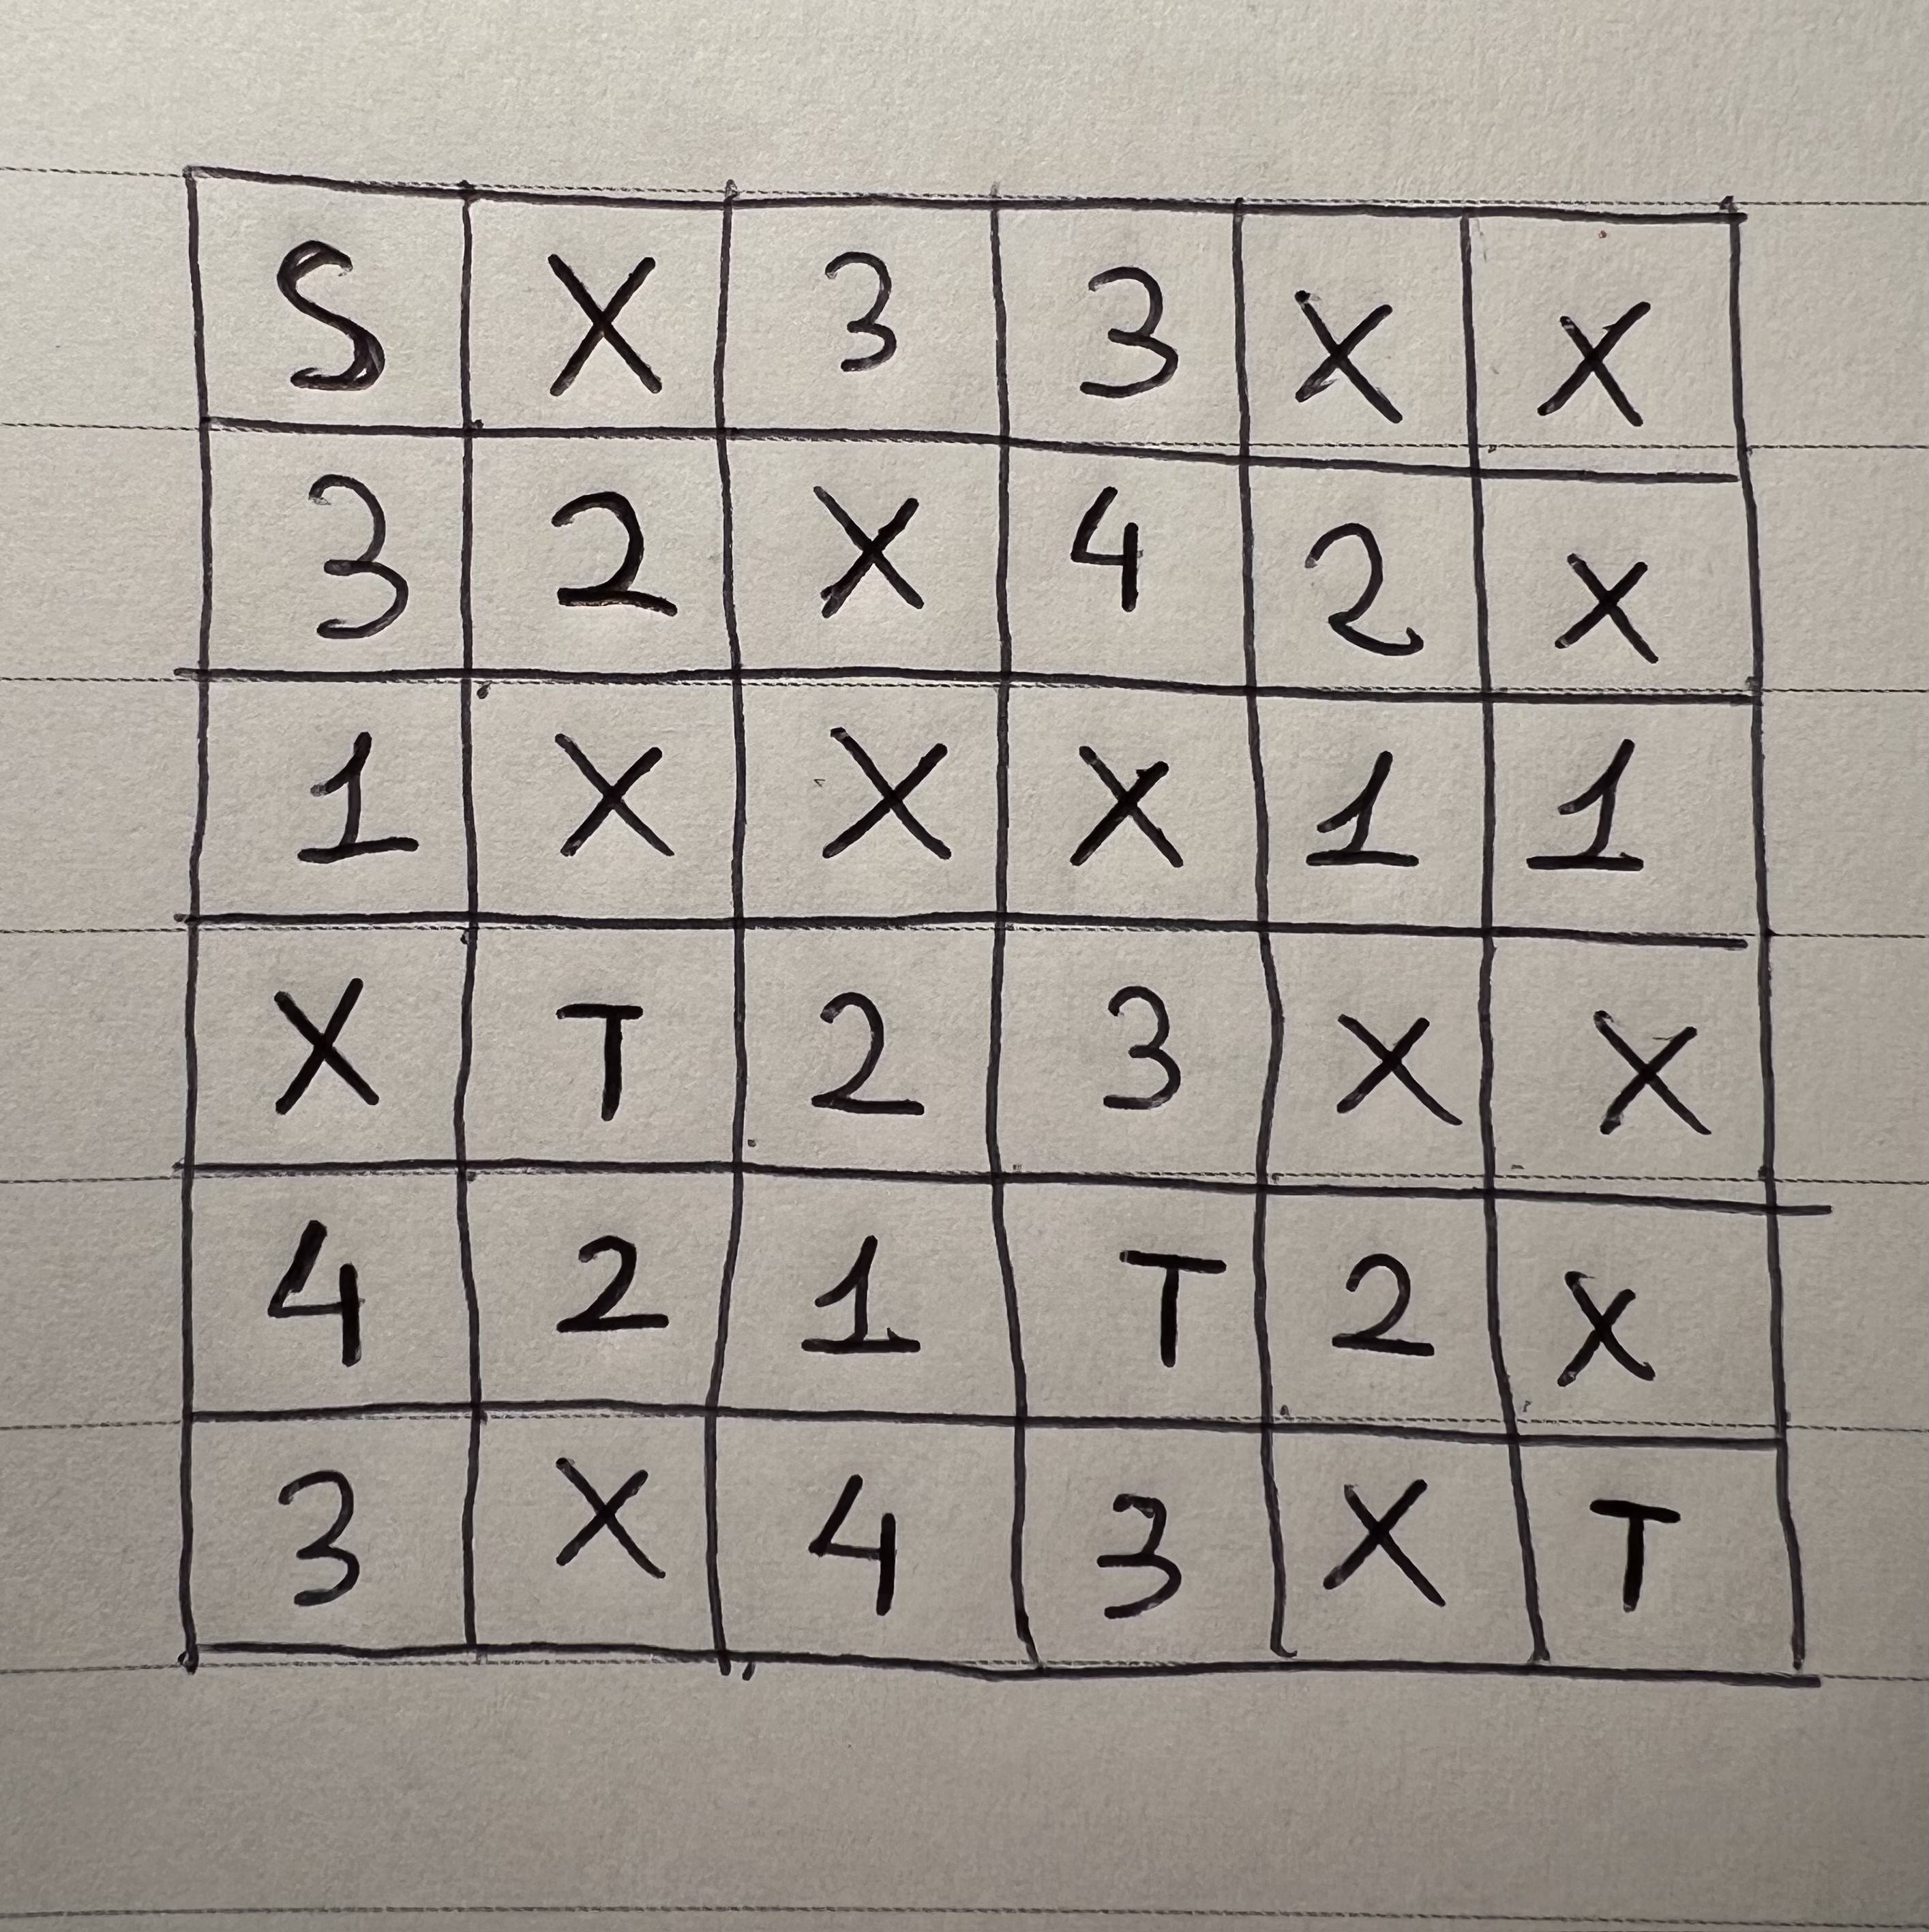 S X 3 3 X X
3 2 X 4 2 X
1 X X X 1 1
X T 2 3 X X
4 2 1 T 2 X
3 X 4 3 X T